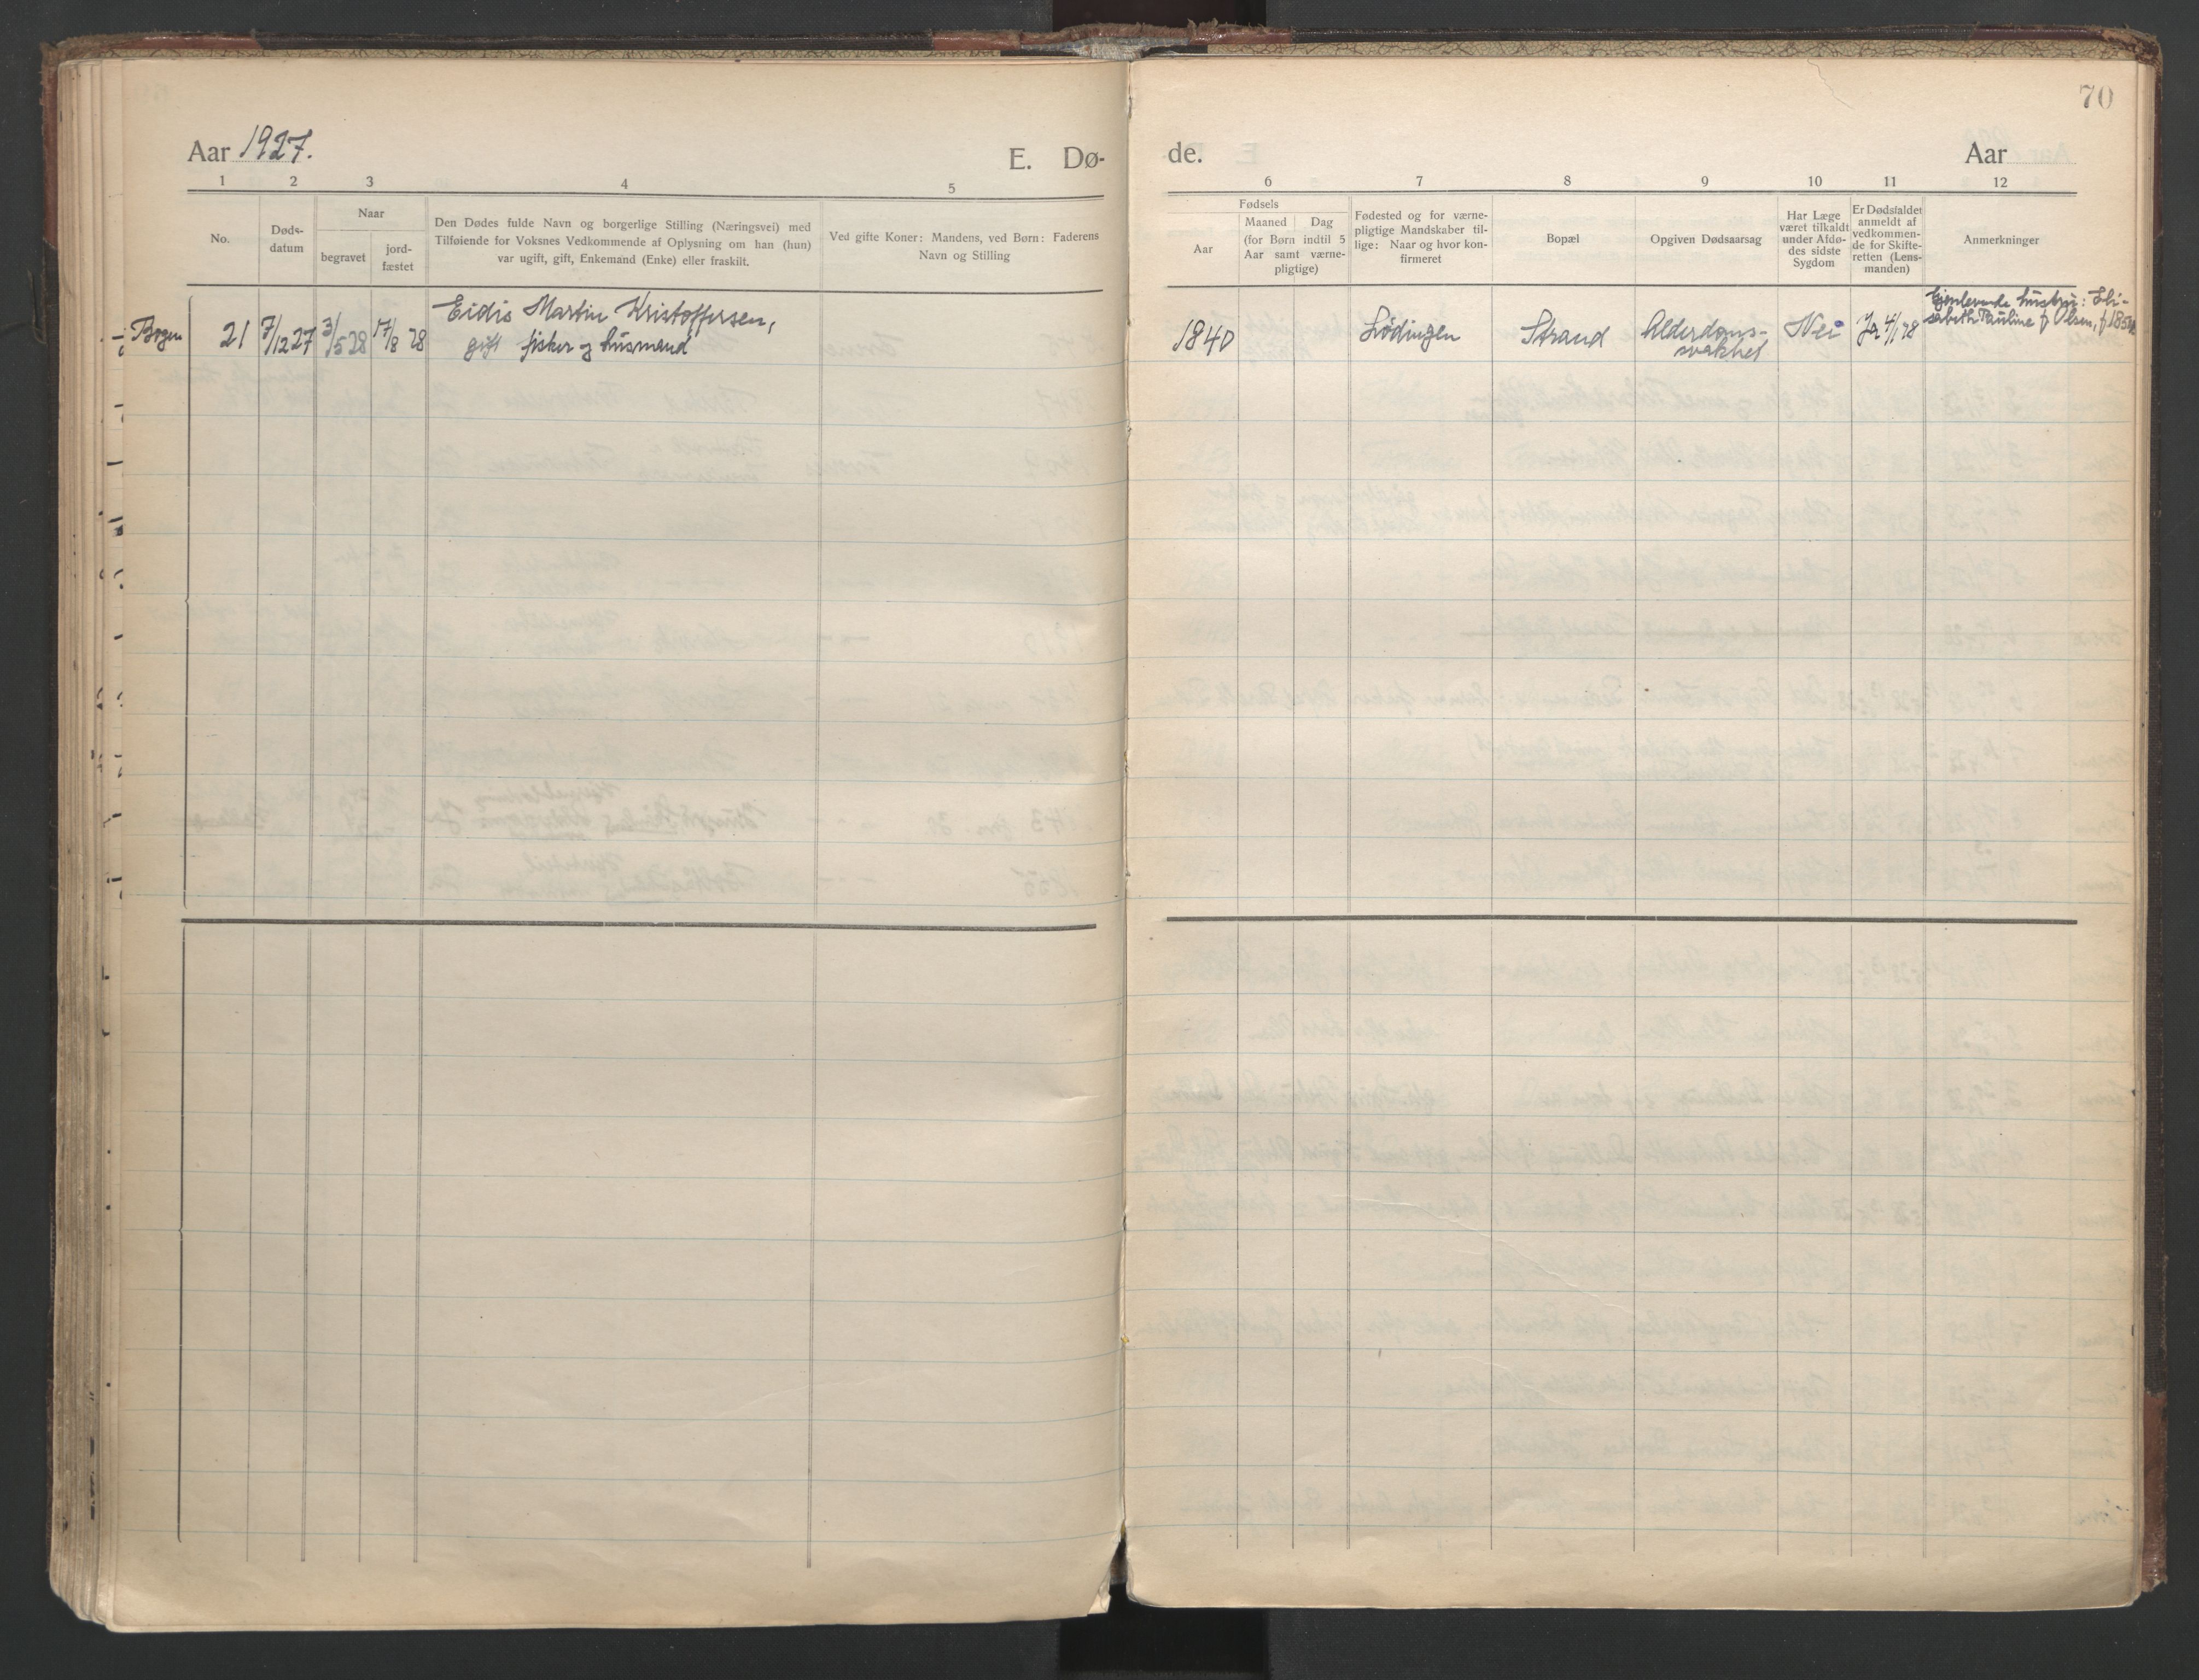 70
Aar 1927.
E. Dø-
de.
Aar
1 2 3 4 5
6 7 8 9 10 11 12
No.
Døds-
datum
Naar
begravet
jord-
fæstet
Den Dødes fulde Navn og borgerlige Stilling (Næringsvei) med
Tilføiende for Voksnes Vedkommende af Oplysning om han (hun)
var ugift, gift, Enkemand (Enke) eller fraskilt.
Ved gifte Koner: Mandens, ved Børn: Faderens
Navn og Stilling
Fødsels
Aar
Maaned Dag
(for Børn indtil 5
Aar samt værne-
pligtige)
Fødested og for værne-
pligtige Mandskaber til-
lige: Naar og hvor kon-
firmeret
Bopæl
Opgiven Dødsaarsag
Har Læge
været tilkaldt
under Afdø-
des sidste
Sygdom
Er Dødsfaldet
anmeldt af
vedkommen-
de for Skifte-
retten (Lens-
manden)
Anmerkninger
Bogen
21
7/12 27
3/5 28
17/8 28
Eidis Martin Kristoffersen,
gift fisker og husmand
1840
Lødingen
Strand
Alderdoms-
svakhet
Nei
Ja 4/1 28
Gjenlevende hustru: Eli-
sabeth Pauline f. Olsen,